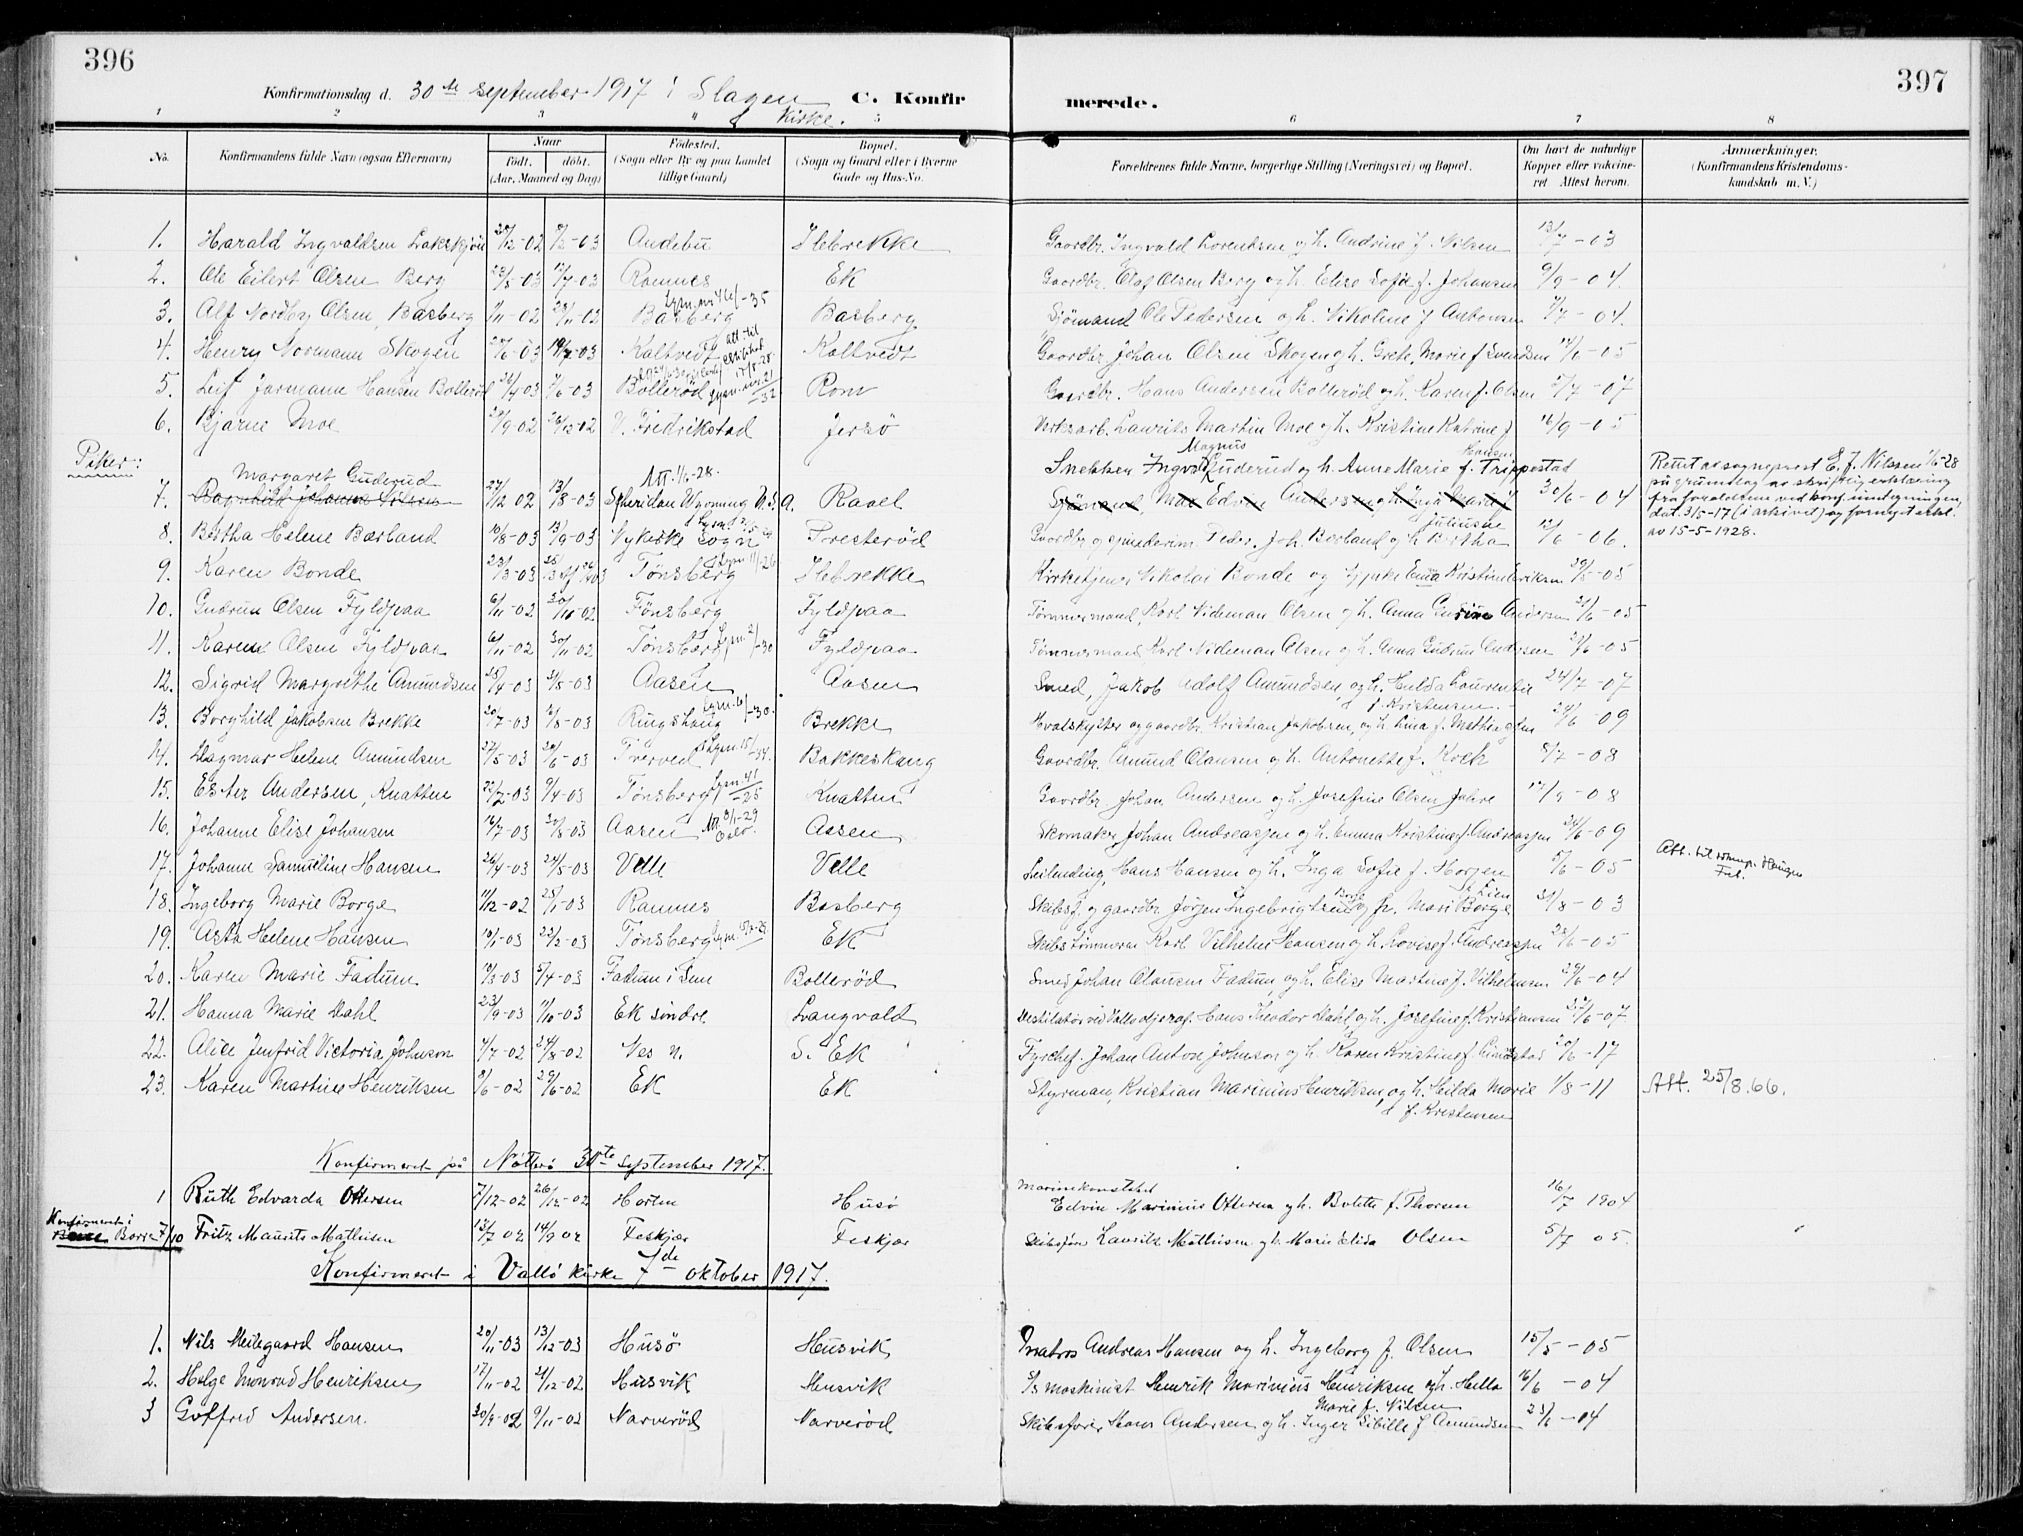 396
397
Konfirmationsdag d. 30te september 1917 i Slagen Kirke.
C. Konfirmerede.
1 2 3 4 5 6 7 8
No. Konfirmandens fulde Navn (ogsaa Efternavn) Naar født. døbt. (Aar, Maaned og Dag) Fødested. (Sogn eller By og paa Landet tillige Gaard) Bopæl. (Sogn og Gaard eller i Byerne Gade og Hus-No.
Forældrenes fulde Navne, borgerlige Stilling (Næringsvei) og Bopæl. Om havt de naturlige Kopper eller vakcineret. Attest herom. Anmærkninger. (Konfirmandens Kristendomskundskab m. V.)
1. Harald Ingvaldsen 02 03 Andebu Ilebrekke Gaardbr. Ingvald Lorentsen og h. Andrine f. Nilsen 13/7-03
2. Ole Eilert Olsen Berg 23/5-03 12/7-03 Ramnes Ek Gaardbr. Olaf Olsen Berg og h. Elise Sofie f. Johansen 9/9-04.
3. Alf Nordby Olsen, Basberg 1/11-02 23/11-02 Basberg Basberg Sjömand Ole Pedersen og h. Nikoline f Antonsen 7/7-04.
4. Henry Normann Skogen /6-03 19/7-03 Kaltvedt Kaltvedt Gaardbr. Johan Olsen Skogen og h. Grete Marie f Svendsen 14/6-05
5. Leif Jarmann Hansen Bollerød 26/4-03 7/6-03 Bollerød Rom Gaardbr. Hans Andersen Bollerød og h. Karen f. Olsen 5/7-07
6. Bjarne Moe 29/9-02 26/12-02 V. Fredrikstad Jersö Verksarb. Laurits Martin Moe og h. Kristine Katrine f. Hansen 16/9-05
Piker:
7. Margaret Guderud 27/12 02 13/8-03 Att. 1/6-28. Sheridan Wyoming U.S.A. Ravel Snekker Ingv. Magnus Guderud og h. Anne Marie f. Trippestad 30/6-04
Rettet av sogneprest E. J. Nilssen 1/6-28
på grundlag av skriftlig erklæring
fra forældrene ved konf. inntegningen,
dat. 3/5-17 (i arkivet) og fornyet erkl.
av 15-5-1928.
8. Bertha Helene Bærland 10/8-03 13/9-03 Vykirke Sogn Presterød Gaardbr. og Peder Joh. Bærland og h. Bertha Juliusdr 12/6-06.
9. Karen Bonde 23/3-03 Tønsberg Ilebrekke Kirketjener Nikolai Bonde og Kristine Eriksen 29/5-05
10. Gudrun Olsen Fyldpaa 6/11-02 30/11-02 Tønsberg Fyldpaa Tømmermand, Karl Nideman Olsen og h. Anna Gudrun Andersen 21/6-05
11. Karen Olsen Fyldpaa 6/11-02 30/11-02 Tønsberg Fyldpaa Tømmermand, Karl Nideman Olsen og h. Anna Gudrun Andersen 21/6-05
12. Sigrid Margrethe Amundsen 25/4-03 31/5-03 Aasen Aasen Smed, Jakob Adolf Amundsen og h. Hulda Laurentze f Kristensen. 24/7-07
13. Borghild Jakobsen Brekke 20/7-03 /8-03 Ringshaug Brekke Hvalskytter og gaardbr. Kristian Jakobsen, og h. Lina f. Mathingsen 24/6-09
14. Dagmar Helene Amundsen 27/5-03 20/6-03 Tverved Bakkeskaug Gaardbr. Amund Olausen og h. Antonette f. Krek 8/7-08
15. Ester Andersen, Knatten 22/2-03 9/4-03 Tønsberg Knatten Gaardbr. Johan Andersen og h. Josefine Olsen Jahre 17/9-08
16. Johanne Elise Johansen 16/7-03 30/8-03 Aasen Aasen Skomaker Johan Andreassen og h. Emma Kristine f. Andreassen 24/6-09
17. Johanne Samueline Hansen 26/4-03 24/5-03 Velle Velle Leilending, Hans Hansen og h. Inga Sofie f. Horgen 5/6-05
18. Ingeborg Marie Borge 11/12-02 25/1-03 Ramnes Basberg Skibsf. og gaardbr. Jörgen Ingebrigtsen Borge og h. Mari Borge f. Lien 31/8-03
19. Asta Helene Hansen 10/1-03 22/2-03 Tønsberg Ek Skibstømmerm Karl Vilhelm Hansen og h. Lovise f. Andreassen 23/6-05
20. Karen Marie Fadum 10/3-03 5/4-03 Fadum i Sem Bollerød Smed Johan Olausen Fadum, og h. Elise Martine f. Vilhelmsen 29/6-04
21. Hanna Marie Dahl 23/9-03 11/10-03 Ek söndre Langvald Destilatör ved Vallö oljeraf. Hans Teodor Dahl og h. Josefine f. Kristiansen 22/6-07.
22. Alice Jenfrid Victoria Johnson 4/7-02 24/8-02 Nes n. S. Ek Fyrchef. Johan Anton Johnson og h. Karen Kristine f. Lindstad 20/6-17
23. Karen Martine Henriksen 8/6-02 29/6-02 Ek Ek Styrman, Kristian Marinius Henriksen, og h. Hilda Marie f. Kristensen 1/8-11 Att. 25/8.66.
Konfirmeret på Nötterö 30te september 1917.
1 Ruth Edvarda Ottersen 7/12-02 26/12-02 Horten Husö Marinekonstabel Edvin Marinius Ottersen og h. Bolette f. Thorsen 16/7 1904
Konfirmeret i Borre 7/10 Fritz Maurits Mathisen 12/7 02 14/9 02 Feskjær Feskjær Skibsfører Lauritz Mathisen og h. Marie Elida Olsen 5/7 05.
Konfirmeret i Vallö kirke 7de oktober 1917.
1. Nils Meilegaard Hansen 20/11-03 13/12-03 Husö Husvik Matros Andreas Hansen og h. Ingeborg f. Olsen 15/5-05
2. Helge Monrad Henriksen 17/11-02 21/12-02 Husvik Husvik S/s maskinist Henrik Marinius Henriksen og h. Helle Marie f. Nilsen 16/6-04
3 Gotfred Andersen 20/9-02 9/11-02 Narverød Narverød Skibsfører Hans Andersen og h. Inger Sibille f Amundsen 23/6-04